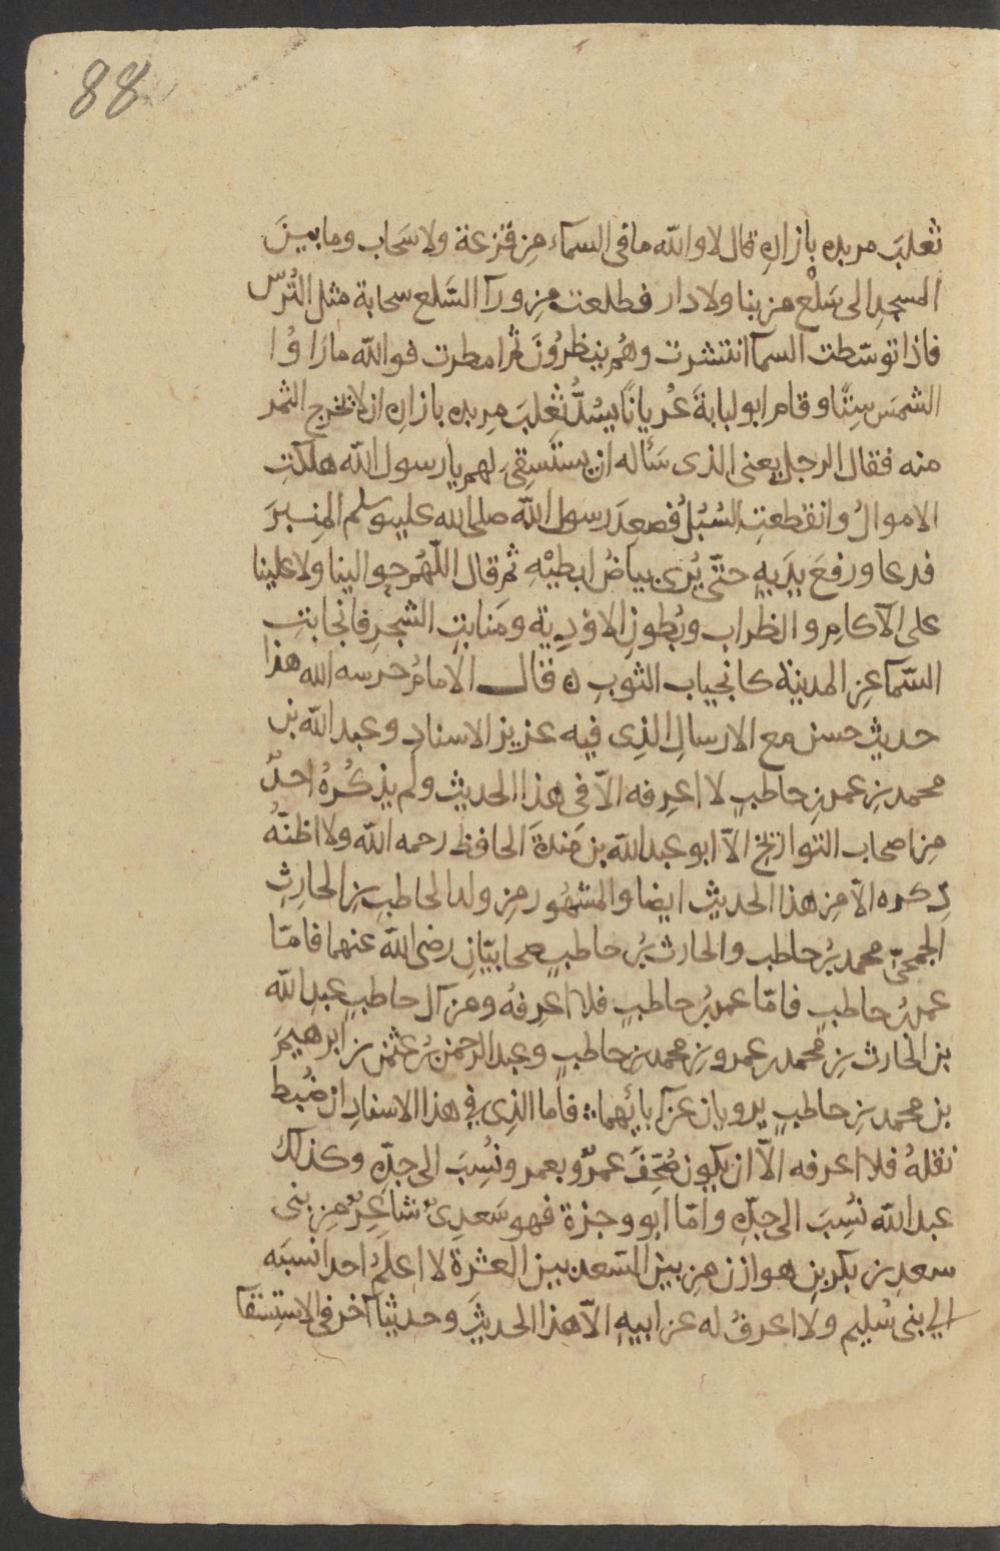 88
ثعلبَ مربده بإزارِه قال لا والله ما فى السمآء مِن قزعة ولا سَحاب وما بينَ
المسجدِ الى سَلْع من بنا ولا دار فطلعت مِن ورآ السَّلع سحابة مثل التُرس
فاذا توسّطت السمآ انتشرت وهُم ينظرُونَ ثم امطرت فو الله ما رَاوُا
الشمسَ سِتًّا وقام ابو لبابةَ عُريانًا يسُدُّ ثعلبَ مِربده بازارِه ان لا يخرج التمر
منه فقال الرجل يعنى الذى سَئاله ان يستَسِقىَ لهم يا رسول الله هلكتِ
الاموالُ وانقطعتِ السُبُلُ فصعِدَ رسول الله صلى الله عليه وسلم المِنبرَ
فدعا ورفعَ يدَيهِ حتّى يُرى بياضُ ابطيْهِ ثم قال اللّهُم حوالينا ولا علينا
على الآكامِ والظراب وبُطونِ الاودِية ومَنابتِ الشجرِ فانجابتِ
السّما عنِ المدينة كانجيابِ الثوبِ ٥ قال الامامُ حرسه الله هذا
حديث حسن مع الارسالِ الذِى فيه عزيز الاسنادِ وعبد الله بن
محمد بنِ عمر بنِ حاطبٍ لا اعرِفه الاّ فى هذا الحديث ولم يذكُرهُ احدٌ
مِن اصحاب التواريخ الاّ ابو عبد الله بن مَندةَ الحافظ رحمه الله ولا اظنُّه
ذكره الاّ مِن هذا الحديثِ ايضا والمشهُور مِن ولد الحاطبِ بنِ الحارِثِ
الجمحىّ محمد بنُ حاطب والحارث بنُ حاطبٍ صحابيّانِ رضى الله عنهما فامّا
عمر بنُ حاطبٍ فامّا عمر بنُ حاطبٍ فلا اعرِفهُ ومن آل حاطبٍ عبد الله
بن الحارث بنِ محمد بن عمرو بنِ محمد بنِ حاطبٍ وعبد الرحمن بنُ عثمٰن بن ابرهيمَ
بن محمد بنِ حاطبٍ يرويان عن آبائهما فاما الذِى فى هذا الاسنادِ ان ضُبط
نقلهُ فلا اعرفه الاّ ان يكون صُحِّفَ عمرٌو بعمر ونُسِبَ الى جدِّه وكذلك
عبد الله نُسِبَ الى جدِّه وامّا ابو وجزة فهو سَعدِىٌ شاعِرٌ مِن بنى
سعدِ بن بكر بنِ هوازن مِن بين السعد بين العشرة لا اعلمُ احدا نسبَه
الي بنى سُليم ولا اعرفُ له عن ابيهِ الاّ هذا الحديثَ وحديثًا آخر فى الاستِسقآ